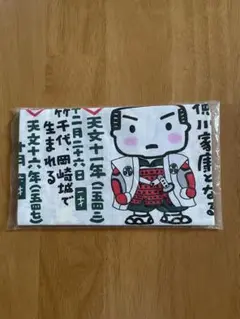 徳川家康となる
天文十一年(一五四二
十二月二十六日 一才
竹千代、岡崎城で
生まれる
天文十六年(一五四七